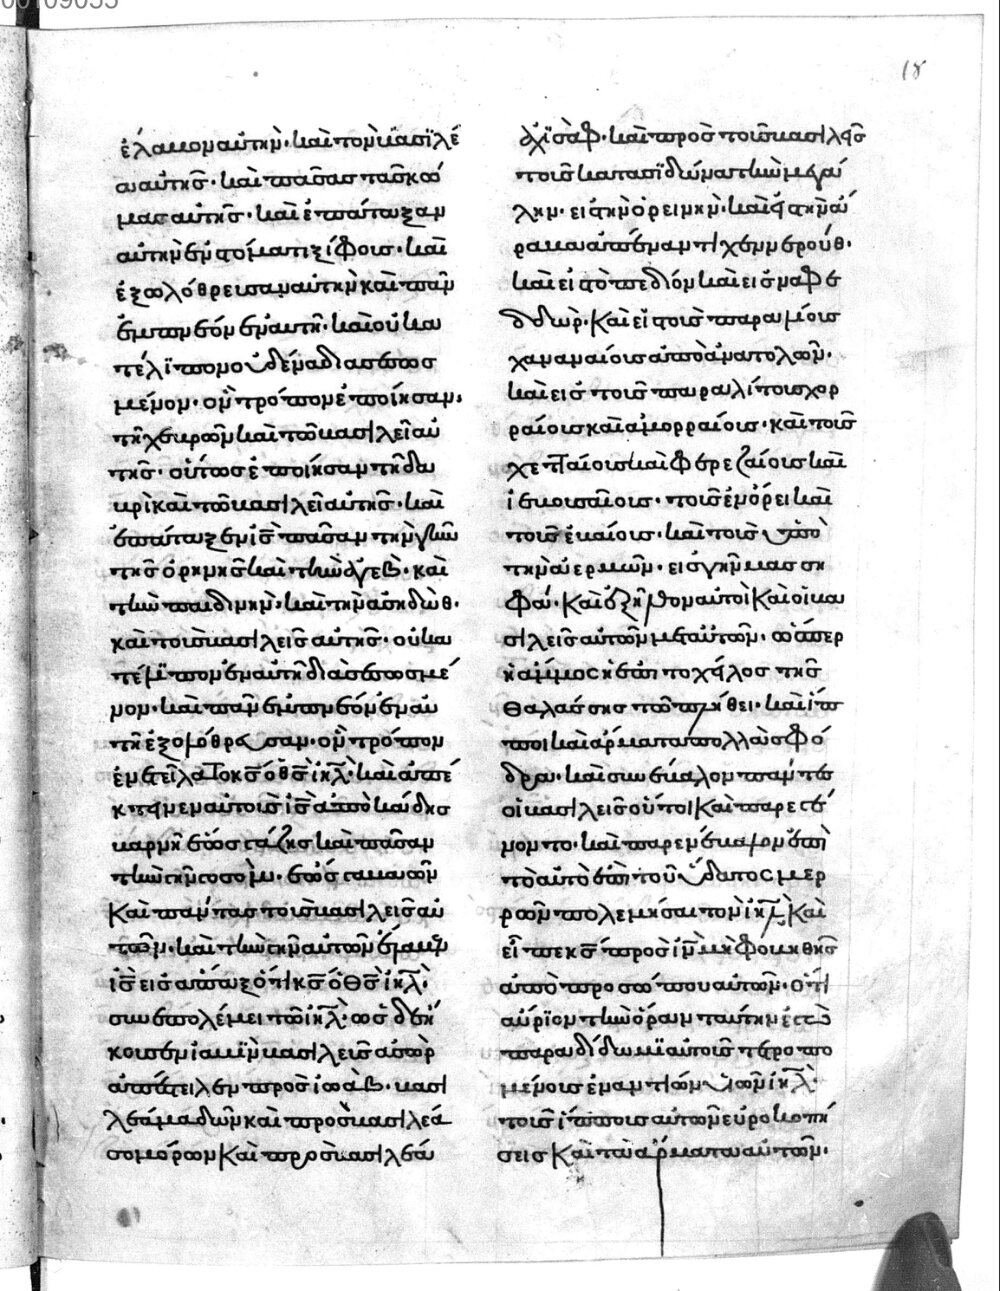 ἔλαβον αὐτὴν· καὶ τὸν βασιλέ
α αὐτῆς· καὶ πάσας τὰς κώ
μας αὐτῆς· καὶ ἐπάταξαν
αὐτὴν ἐν στόματι ξίφους· καὶ
ἐξωλόθρευσαν αὐτὴν καὶ πᾶν
ἐμπνέον ἐν αὐτῇ· καὶ οὐ κα
τέλιπον οὐδένα διασεσωσ
μένον· ὃν τρόπον ἐποίησαν
τῇ χευρὼν καὶ τῶ βασιλεῖ αὐ
τῆς· οὕτως ἐποίησαν τῇ δα
βὶρ καὶ τῶ βασιλεῖ αὐτῆς· καὶ
ἐπάταξεν ἰς πᾶσαν τὴν γῆν
τῆς ὀρινῆς καὶ τὴν ἀγεβ· καὶ
τὴν παιδινὴν· καὶ τὴν ἀσηδὼθ·
καὶ τοὺς βασιλεῖς αὐτῆς· οὐ κα
τέλιπον ἐν αὐτῇ διασεσωσμέ
νον· καὶ πᾶν ἐμπνέον ἐν αὐ
τῇ ἐξολόθρευσαν· ὃν τρόπον
ἐνετείλατο κς ὁ θς ιηλ· καὶ ἀπέ
κτεινεν αὐτοὺς ἰς ἀπὸ κάδης
βαρνῆ ἕως γάζης καὶ πᾶσαν
τὴν γῆν γοσομ· ἕως γαβαὼν
Καὶ πάντας τοὺς βασιλεῖς αὐ
τῶν· καὶ τὴν γῆν αὐτῶν ἔλαβεν
ἰς εἰς ἅπαξ ὅτι κς ὁ θς ιηλ·
συνεπολέμει τῶ ιηλ· ὡς δὲ ἤ
κουσεν ἰαμὶν βασιλεὺς ἀσὼρ
ἀπέστειλεν πρὸς ἰωάβ· βασι
λέα μαδὼν καὶ πρὸς βασιλέα
σομόρων Καὶ πρὸς βασιλέα
ἀχϊσάφ· καὶ πρὸς τοὺς βασιλεῖς
τοὺς κατα σϊδῶνα τὴν μεγά
λην· εἰς τὴν ὀρεινὴν· καὶ εἰς τὴν ἄ
ραβα ἀπέναντι χεννερούθ·
καὶ εἰς τὸ πεδίον καὶ εἰς ναφε
δδώρ· Καὶ εἰς τοὺς παραλίους
χαναναίους ἀπὸ ἀνατολῶν·
καὶ εἰς τοὺς παραλίους χορ
ραίους καὶ ἀμορραίους· καὶ τοὺς
χετταίους καὶ φερεζαίους καὶ
ἰεβουσαίους· τοὺς ἐν ὄρει καὶ
τοὺς ἑυαίους· καὶ τοὺς ὑπὸ
τὴν ἀερμὼν· εἰς γῆν μασση
φά· Καὶ ἐξῆλθον αὐτοὶ Καὶ οἱ βα
σιλεῖς αὐτῶν μετ αὐτῶν· ὥσπερ
ἡ ἄμμος ἡ ἐπι το χεῖλος τῆς
θαλάσσης τῶ πλήθει· καὶ ἵπ
ποι καὶ ἅρματα πολλὰ σφό
δρα· καὶ συνέβαλον πάντες
οἱ βασιλεῖς οὗτοι Καὶ παρεγέ
νοντο· καὶ παρενέβαλον ἐπὶ
τὸ αὐτὸ ἐπὶ τοῦ ὕδατος μερ
ρὼν πολεμῆσαι τὸν ιηλ Καὶ
εἶπε κς πρὸς ἰν μὴ φοβηθῆς
ἀπὸ προσώπου αὐτῶν· ὅτι
αὔριον τὴν ὥραν ταύτην ἐγὼ
παραδίδωμϊ αὐτοὺς τετροπω
μένους ἐναντίον υἱῶν ιηλ·
τοὺς ἵππους αὐτῶν νευροκοπή
σεις Καὶ τὰ ἅρματα αὐτῶν·